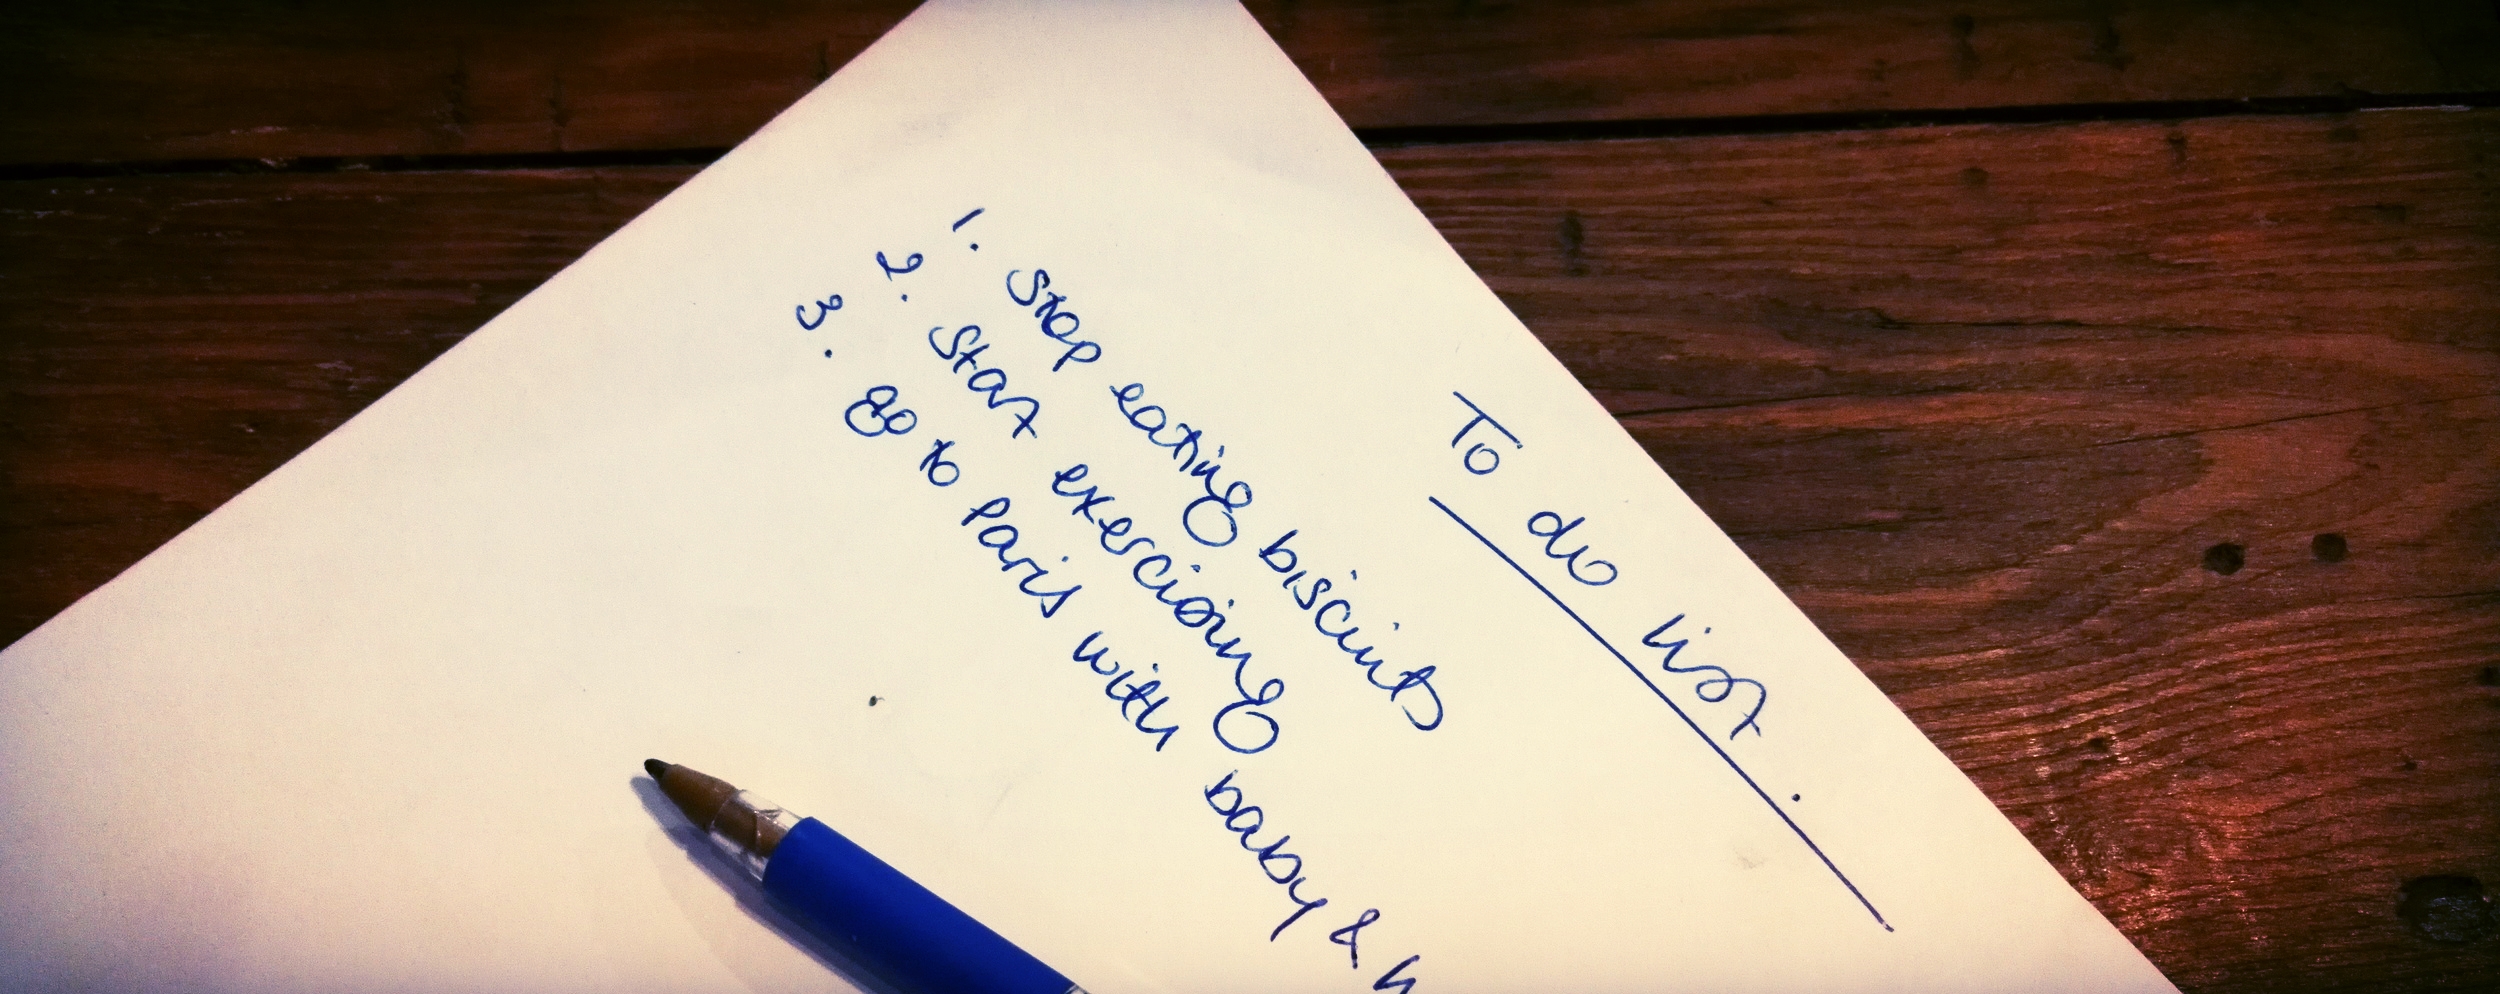 To do list.
1. Stop eating biscuits
2. Start exercising
3. go to Paris with baby &